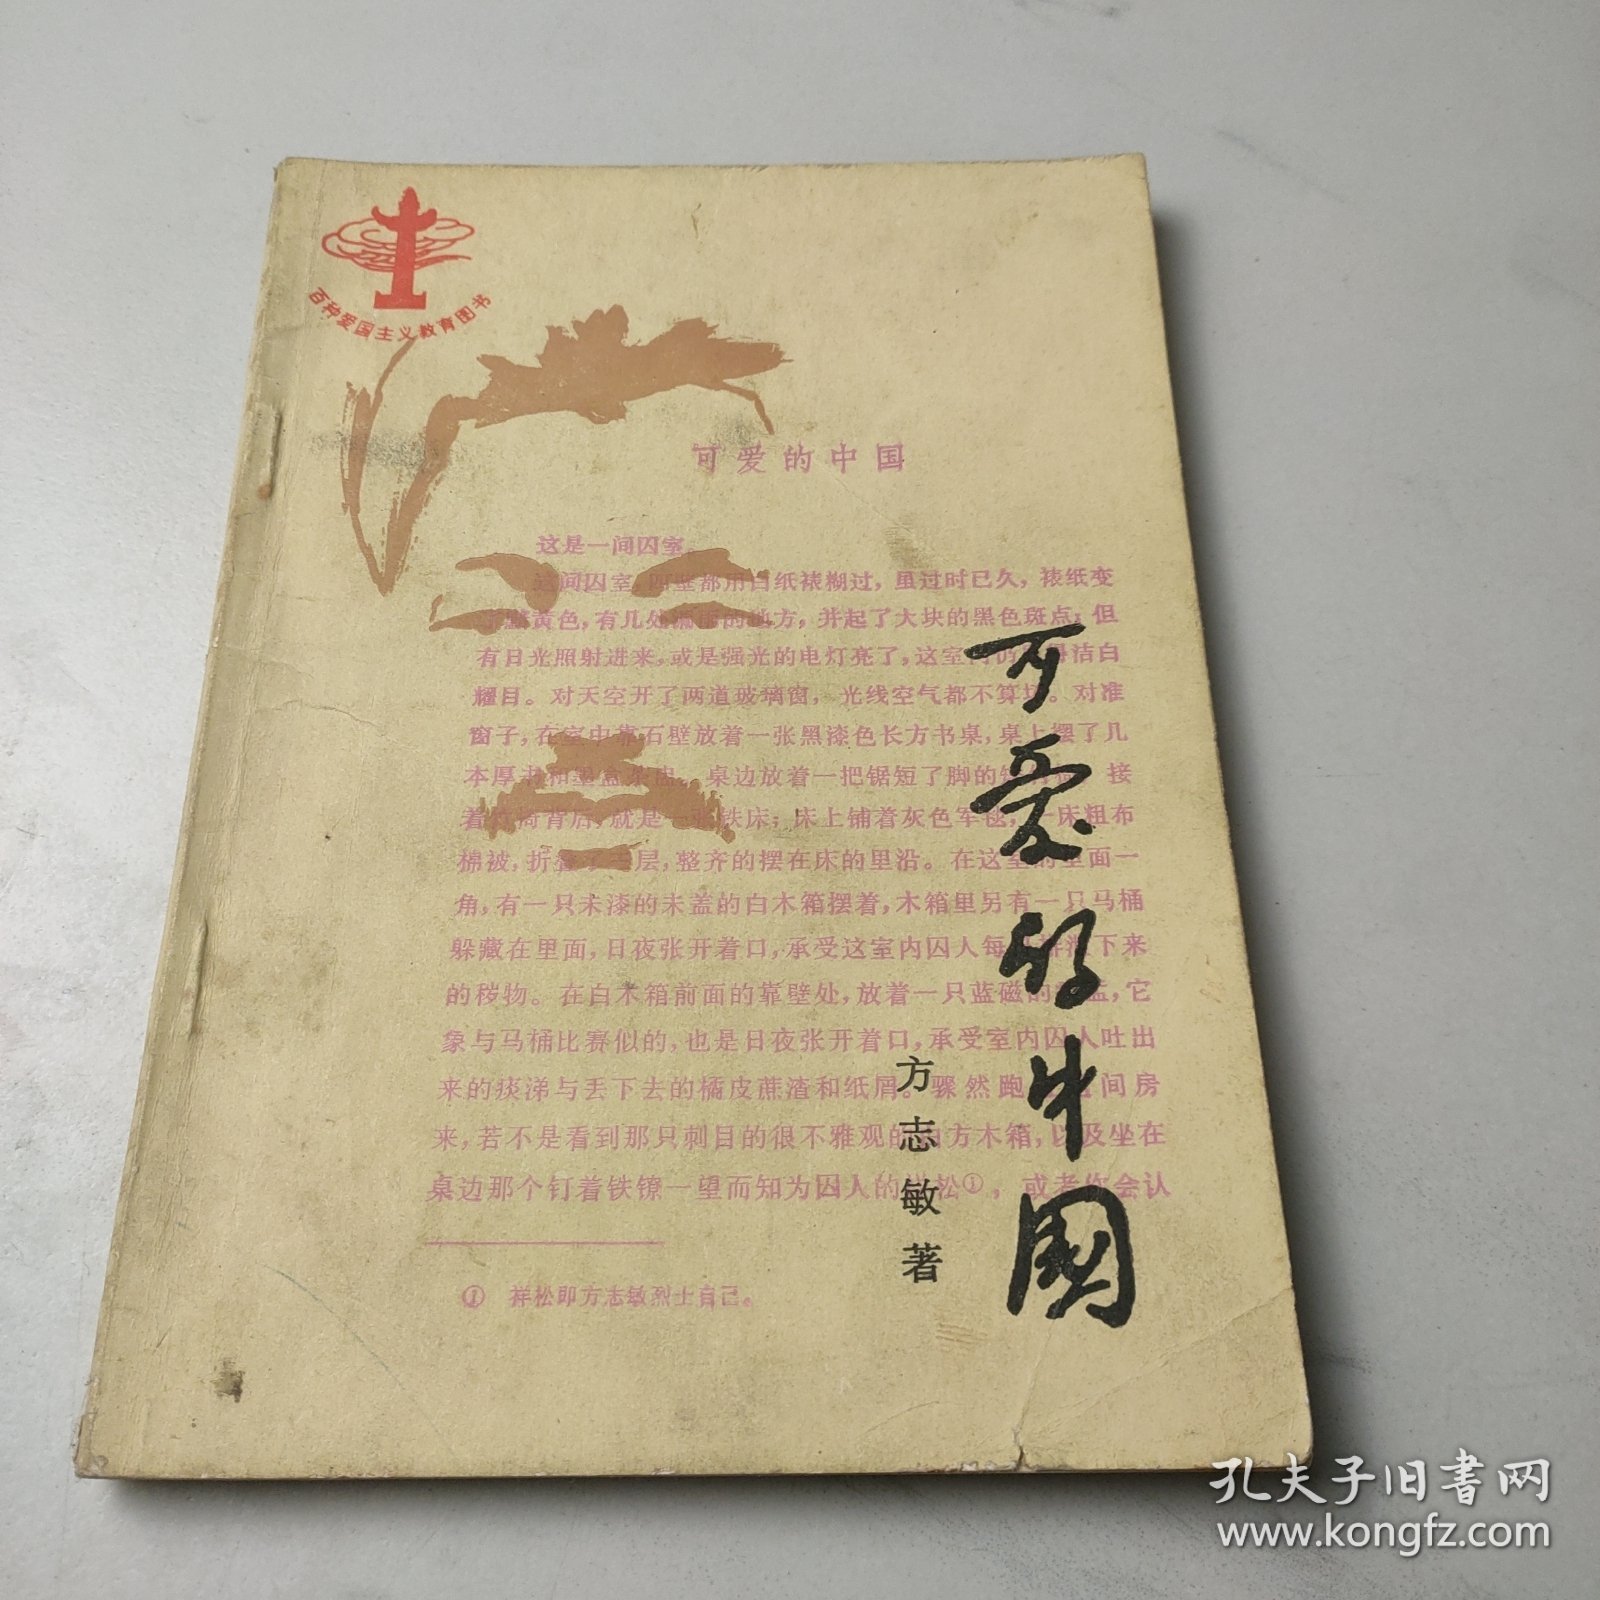 百种爱国主义教育图书
可爱的中国
这是一间囚室。
这间囚室,四壁都用白纸裱糊过,虽过时已久,裱纸变
黯黄色,有几处漏雨的地方,并起了大块的黑色斑点;但
有日光照射进来,或是强光的电灯亮了,这室内仍
洁白
耀目。对天空开了两道玻璃窗,光线空气都不算坏。对准
窗子,在室中靠石壁放着一张黑漆色长方书桌,桌上摆了几
本厚书和墨盒茶盅。桌边放着一把锯短了脚的矮
接
着
椅背后,就是一张铁床;床上铺着灰色军毯,一床粗布
棉被,折叠了三层,整齐的摆在床的里沿。在这室的里面一
角,有一只未漆的未盖的白木箱摆着,木箱里另有一只马桶
躲藏在里面,日夜张开着口,承受这室内囚人每日排泄下来
的秽物。在白木箱前面的靠壁处,放着一只蓝磁的痰盂,它
象与马桶比赛似的,也是日夜张开着口,承受室内囚人吐出
来的痰涕与丢下去的橘皮蔗渣和纸屑。骤然跑进这间房
来,若不是看到那只刺目的很不雅观的白方木箱,以及坐在
桌边那个钉着铁镣一望而知为囚人的祥松①,或者你会认
① 祥松即方志敏烈士自己。
可爱的中國
方志敏著
孔夫子旧書网
www.kongfz.com